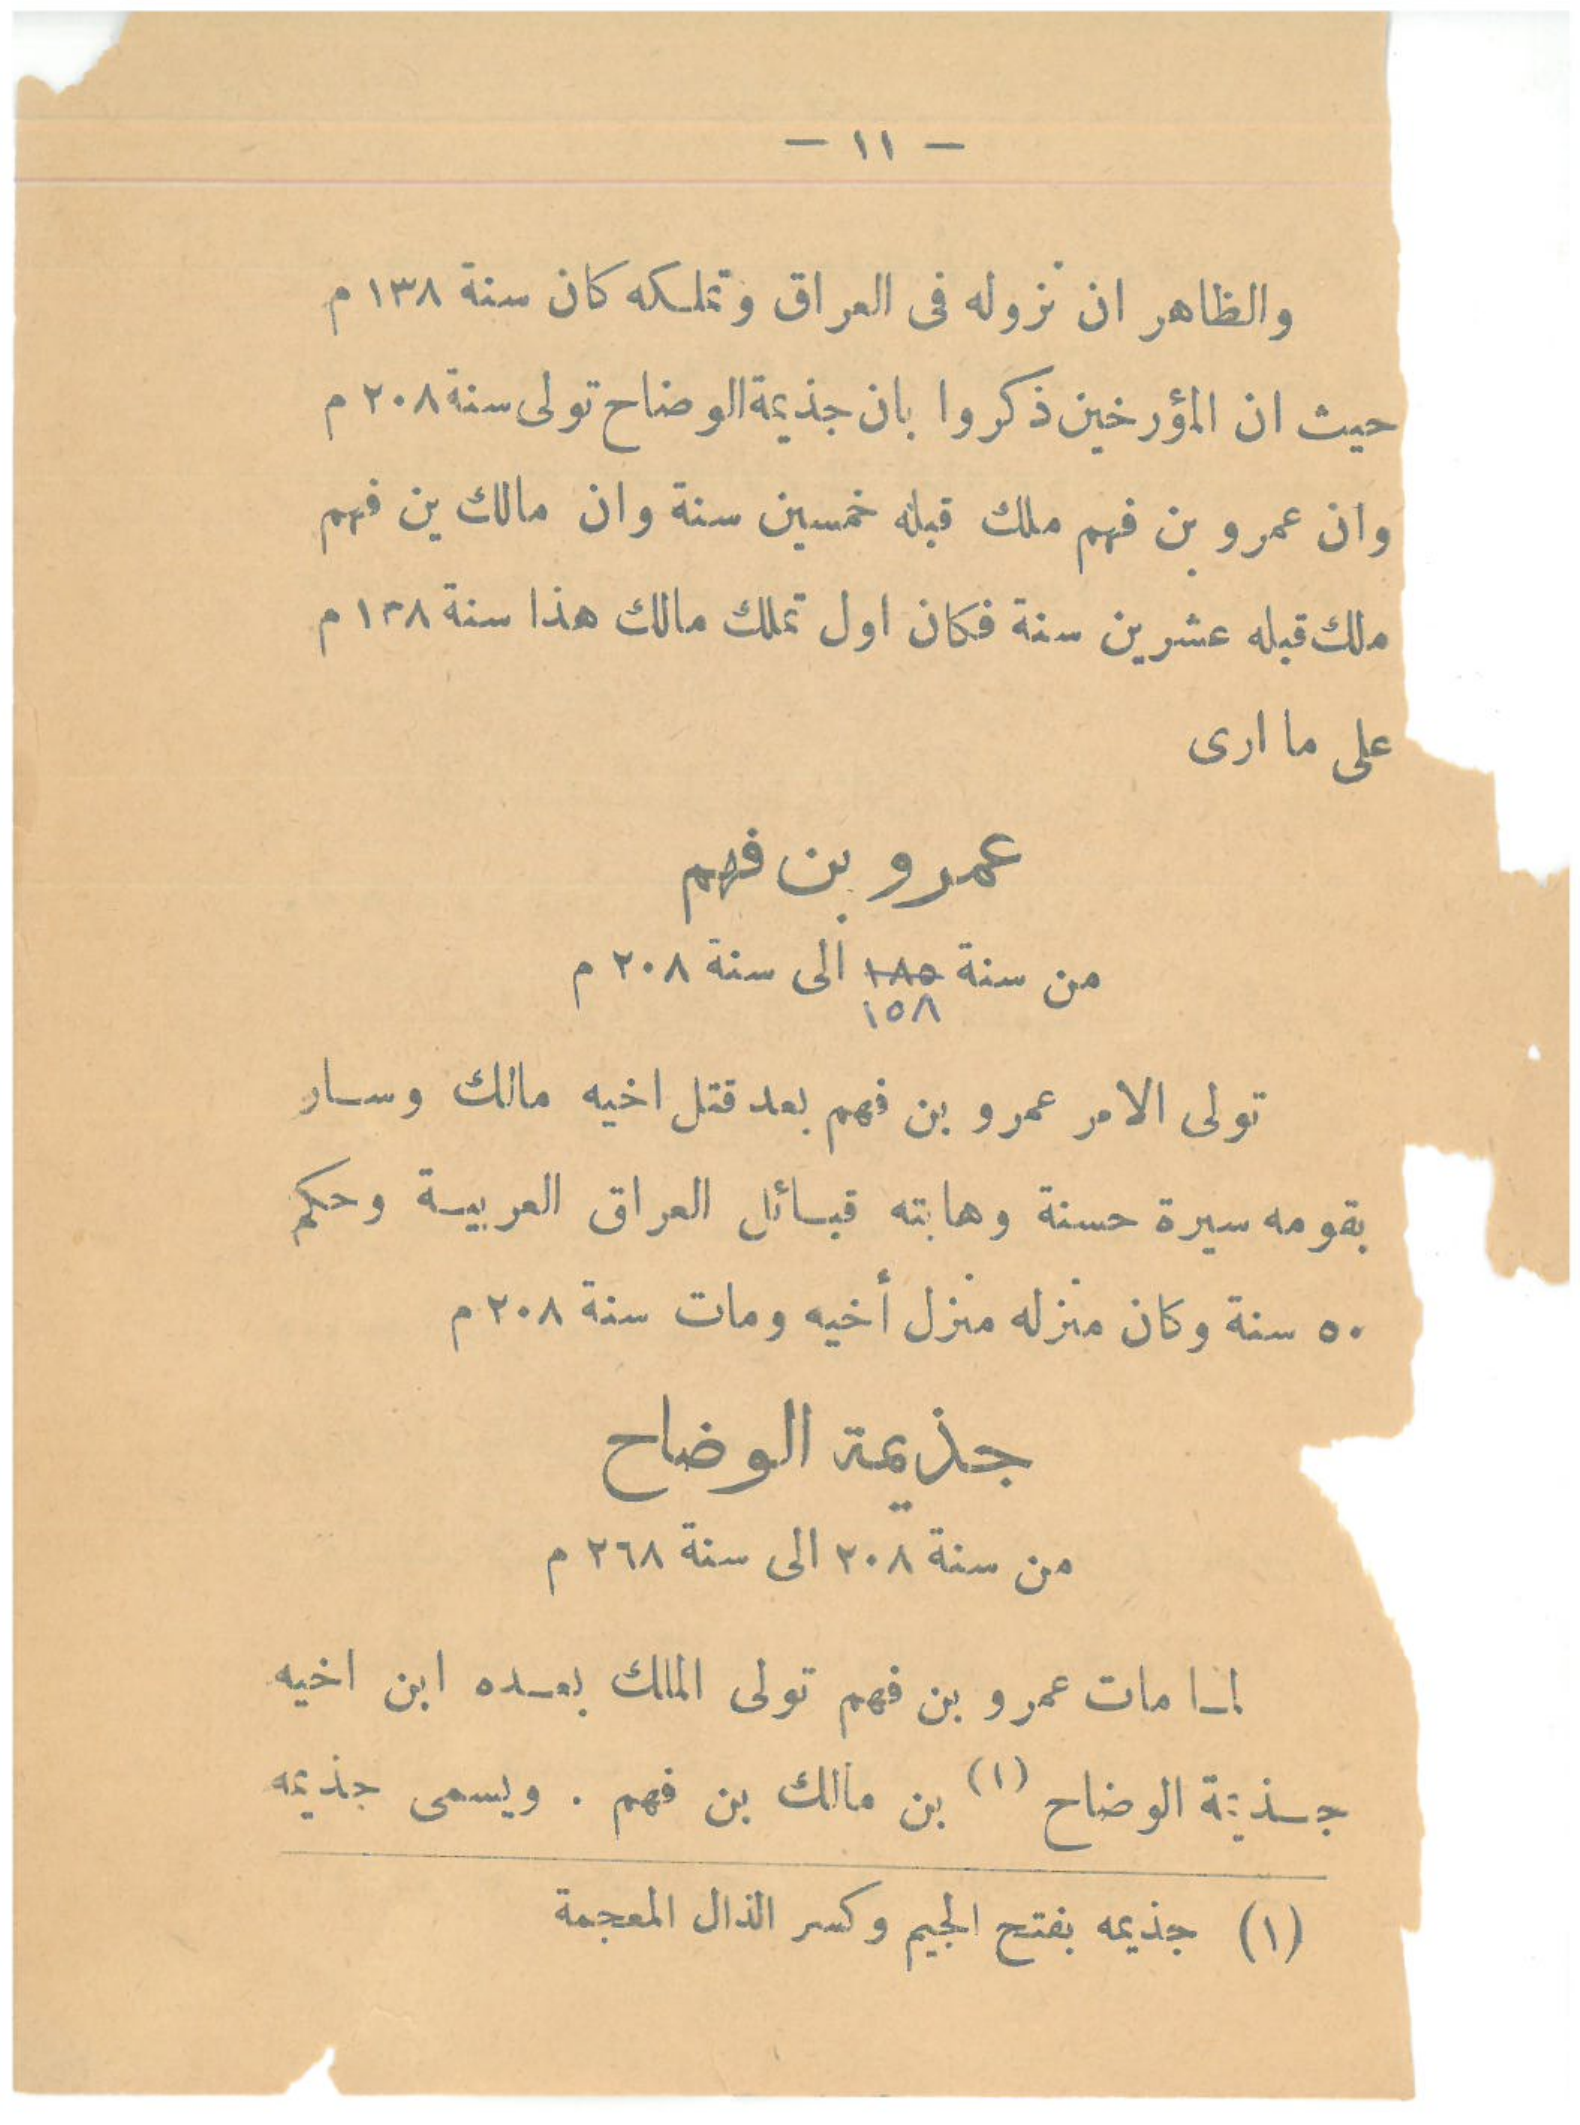 — ١١ —
والظاهر ان نزوله فى العراق وتملكه كان سنة ١٣٨ م
حيث ان المؤرخين ذكروا بان جذيمة الوضاح تولى سنة ٢٠٨ م
وان عمرو بن فهم ملك قبله خمسين سنة وان مالك بن فهم
ملك قبله عشرين سنة فكان اول تملك مالك هذا سنة ١٣٨ م
على ما ارى
عمرو بن فهم
من سنة ١٨٥ الى سنة ٢٠٨ م
١٥٨
تولى الامر عمرو بن فهم بعد قتل اخيه مالك وسار
بقومه سيرة حسنة وهابته قبائل العراق العربية وحكم
٥٠ سنة وكان منزله منزل أخيه ومات سنة ٢٠٨ م
جذيمة الوضاح
من سنة ٢٠٨ الى سنة ٢٦٨ م
لما مات عمرو بن فهم تولى الملك بعده ابن اخيه
جذيمة الوضاح (١) بن مالك بن فهم . ويسمى جذيمه
(١) جذيمه بفتح الجيم وكسر الذال المعجمة